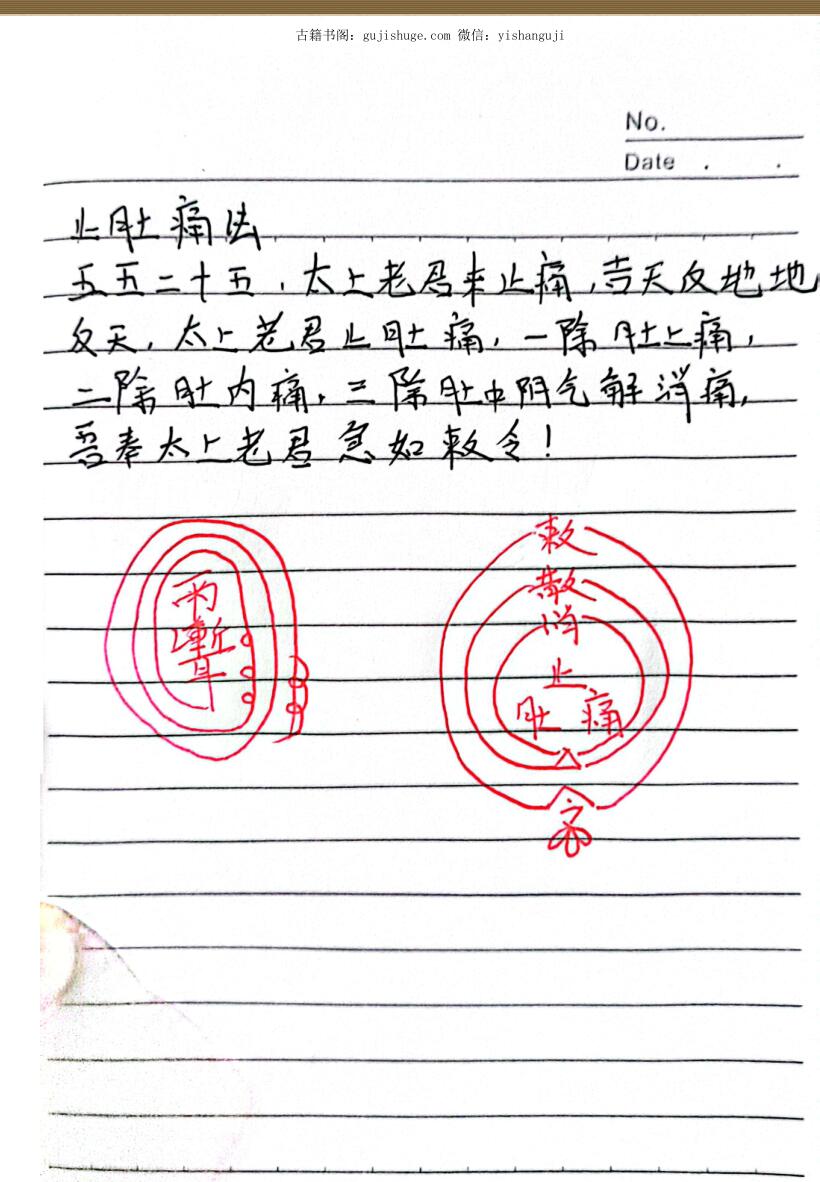 古籍书阁：gujishuge.com 微信：yishanguji
No.
Date . .
止肚痛法
五五二十五，太上老君来止痛，吉天反地地
反天，太上老君止肚痛，一除肚上痛，
二除肚内痛，三除肚中阴气解消痛，
吾奉太上老君急如敕令！
雨
敕
散
消
止
肚痛